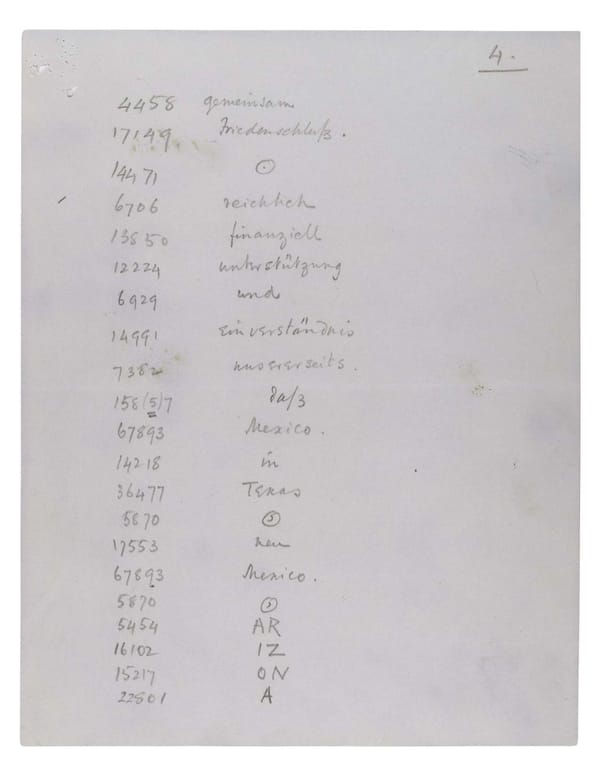 4.
4458 gemeinsam
17149 Friedenschluß.
14471 ⊙
6706 reichlich
13850 finanziell
12224 unterstützung
6929 und
14991 einverständnis
7382 unsererseits.
158(5)7 daß
67893 Mexico.
14218 in
36477 Texas
5870 ⊙
17553 neu
67893 Mexico.
5870 ⊙
5454 AR
16102 IZ
15217 ON
22801 A